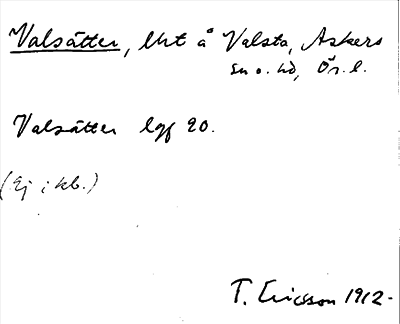 Valsätter, lht å Valsta, Askers
sn o. hd, Ör. l.
Valsätter lgf 20.
(Ej i kb.)
T. Ericsson 1912.